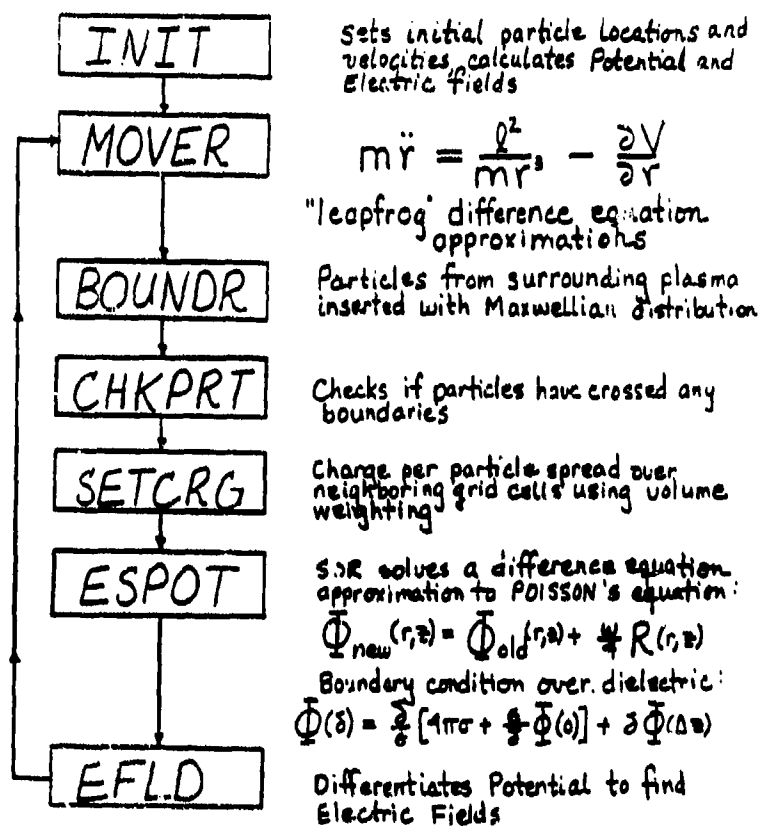 INIT
Sets initial particle locations and
velocities, calculates Potential and
Electric fields
MOVER
m r̈ = ℓ²/mr³ − ∂V/∂r
"leapfrog" difference equation
approximations
BOUNDR
Particles from surrounding plasma
inserted with Maxwellian distribution
CHKPRT
Checks if particles have crossed any
boundaries
SETCRG
Charge per particle spread over
neighboring grid cells using volume
weighting
ESPOT
SOR solves a difference equation
approximation to POISSON's equation:
Φ new (r,z) = Φ old (r,z) + w/4 R(r,z)
Boundary condition over dielectric:
Φ(δ) = [4πσ + Φ(0)] + δ Φ(Δz)
EFLD
Differentiates Potential to find
Electric Fields